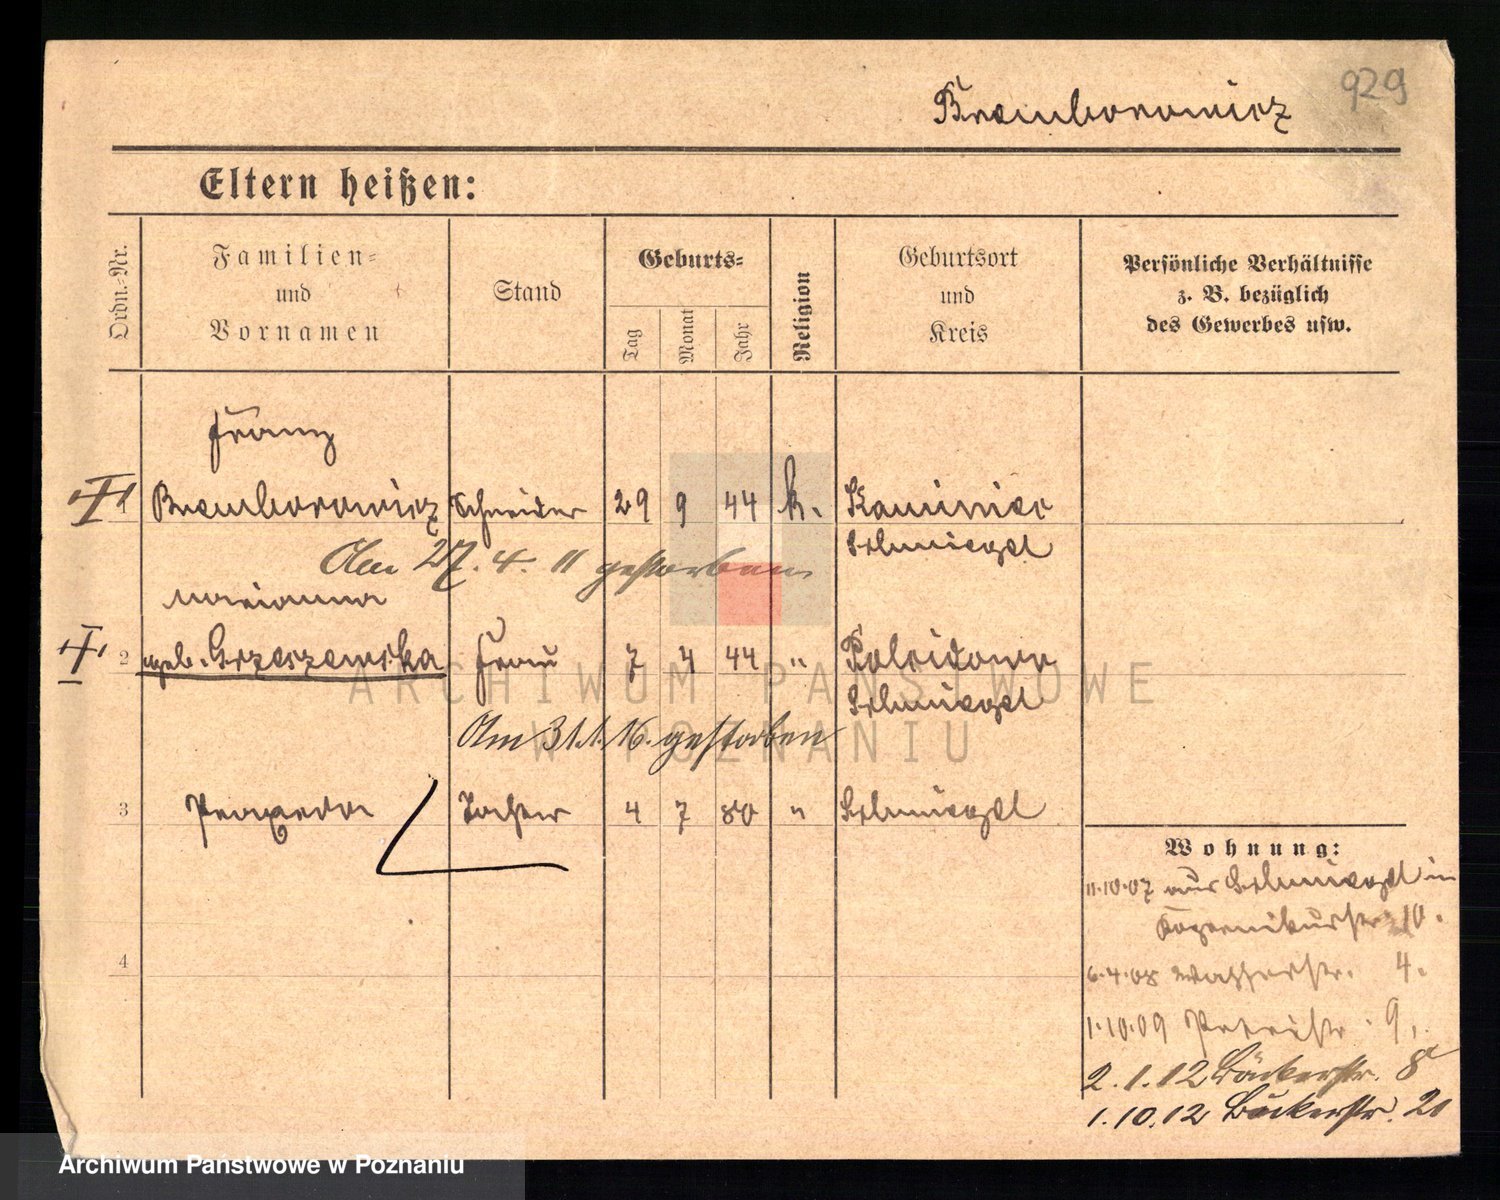 929
Bremborowicz
Eltern heißen:
Ordn.-Nr.
Familien-
und
Vornamen
Stand
Geburts-
Tag
Monat
Jahr
Religion
Geburtsort
und
Kreis
Persönliche Verhältnisse
z. B. bezüglich
des Gewerbes usw.
Franz
1 Bremborowicz Schneider 29 9 44 k. Kaminiec
Schmiegel
Am 27. 4. 11 gestorben
Marianna
2 geb. Grzeszewska Frau 7 4 44 "
Schmiegel
Am 31.1.16. gestorben
3 Praxeda Tochter 4 7 80 " Schmiegel
4
Wohnung:
11.10.07 aus Schmiegel in
10.
6.4.08 Wasserstr. 4.
1.10.09 Petristr. 9.
2.1.12 Bäckerstr. 8
1.10.12 Bäckerstr. 21
ARCHIWUM PAŃSTWOWE
W POZNANIU
Archiwum Państwowe w Poznaniu